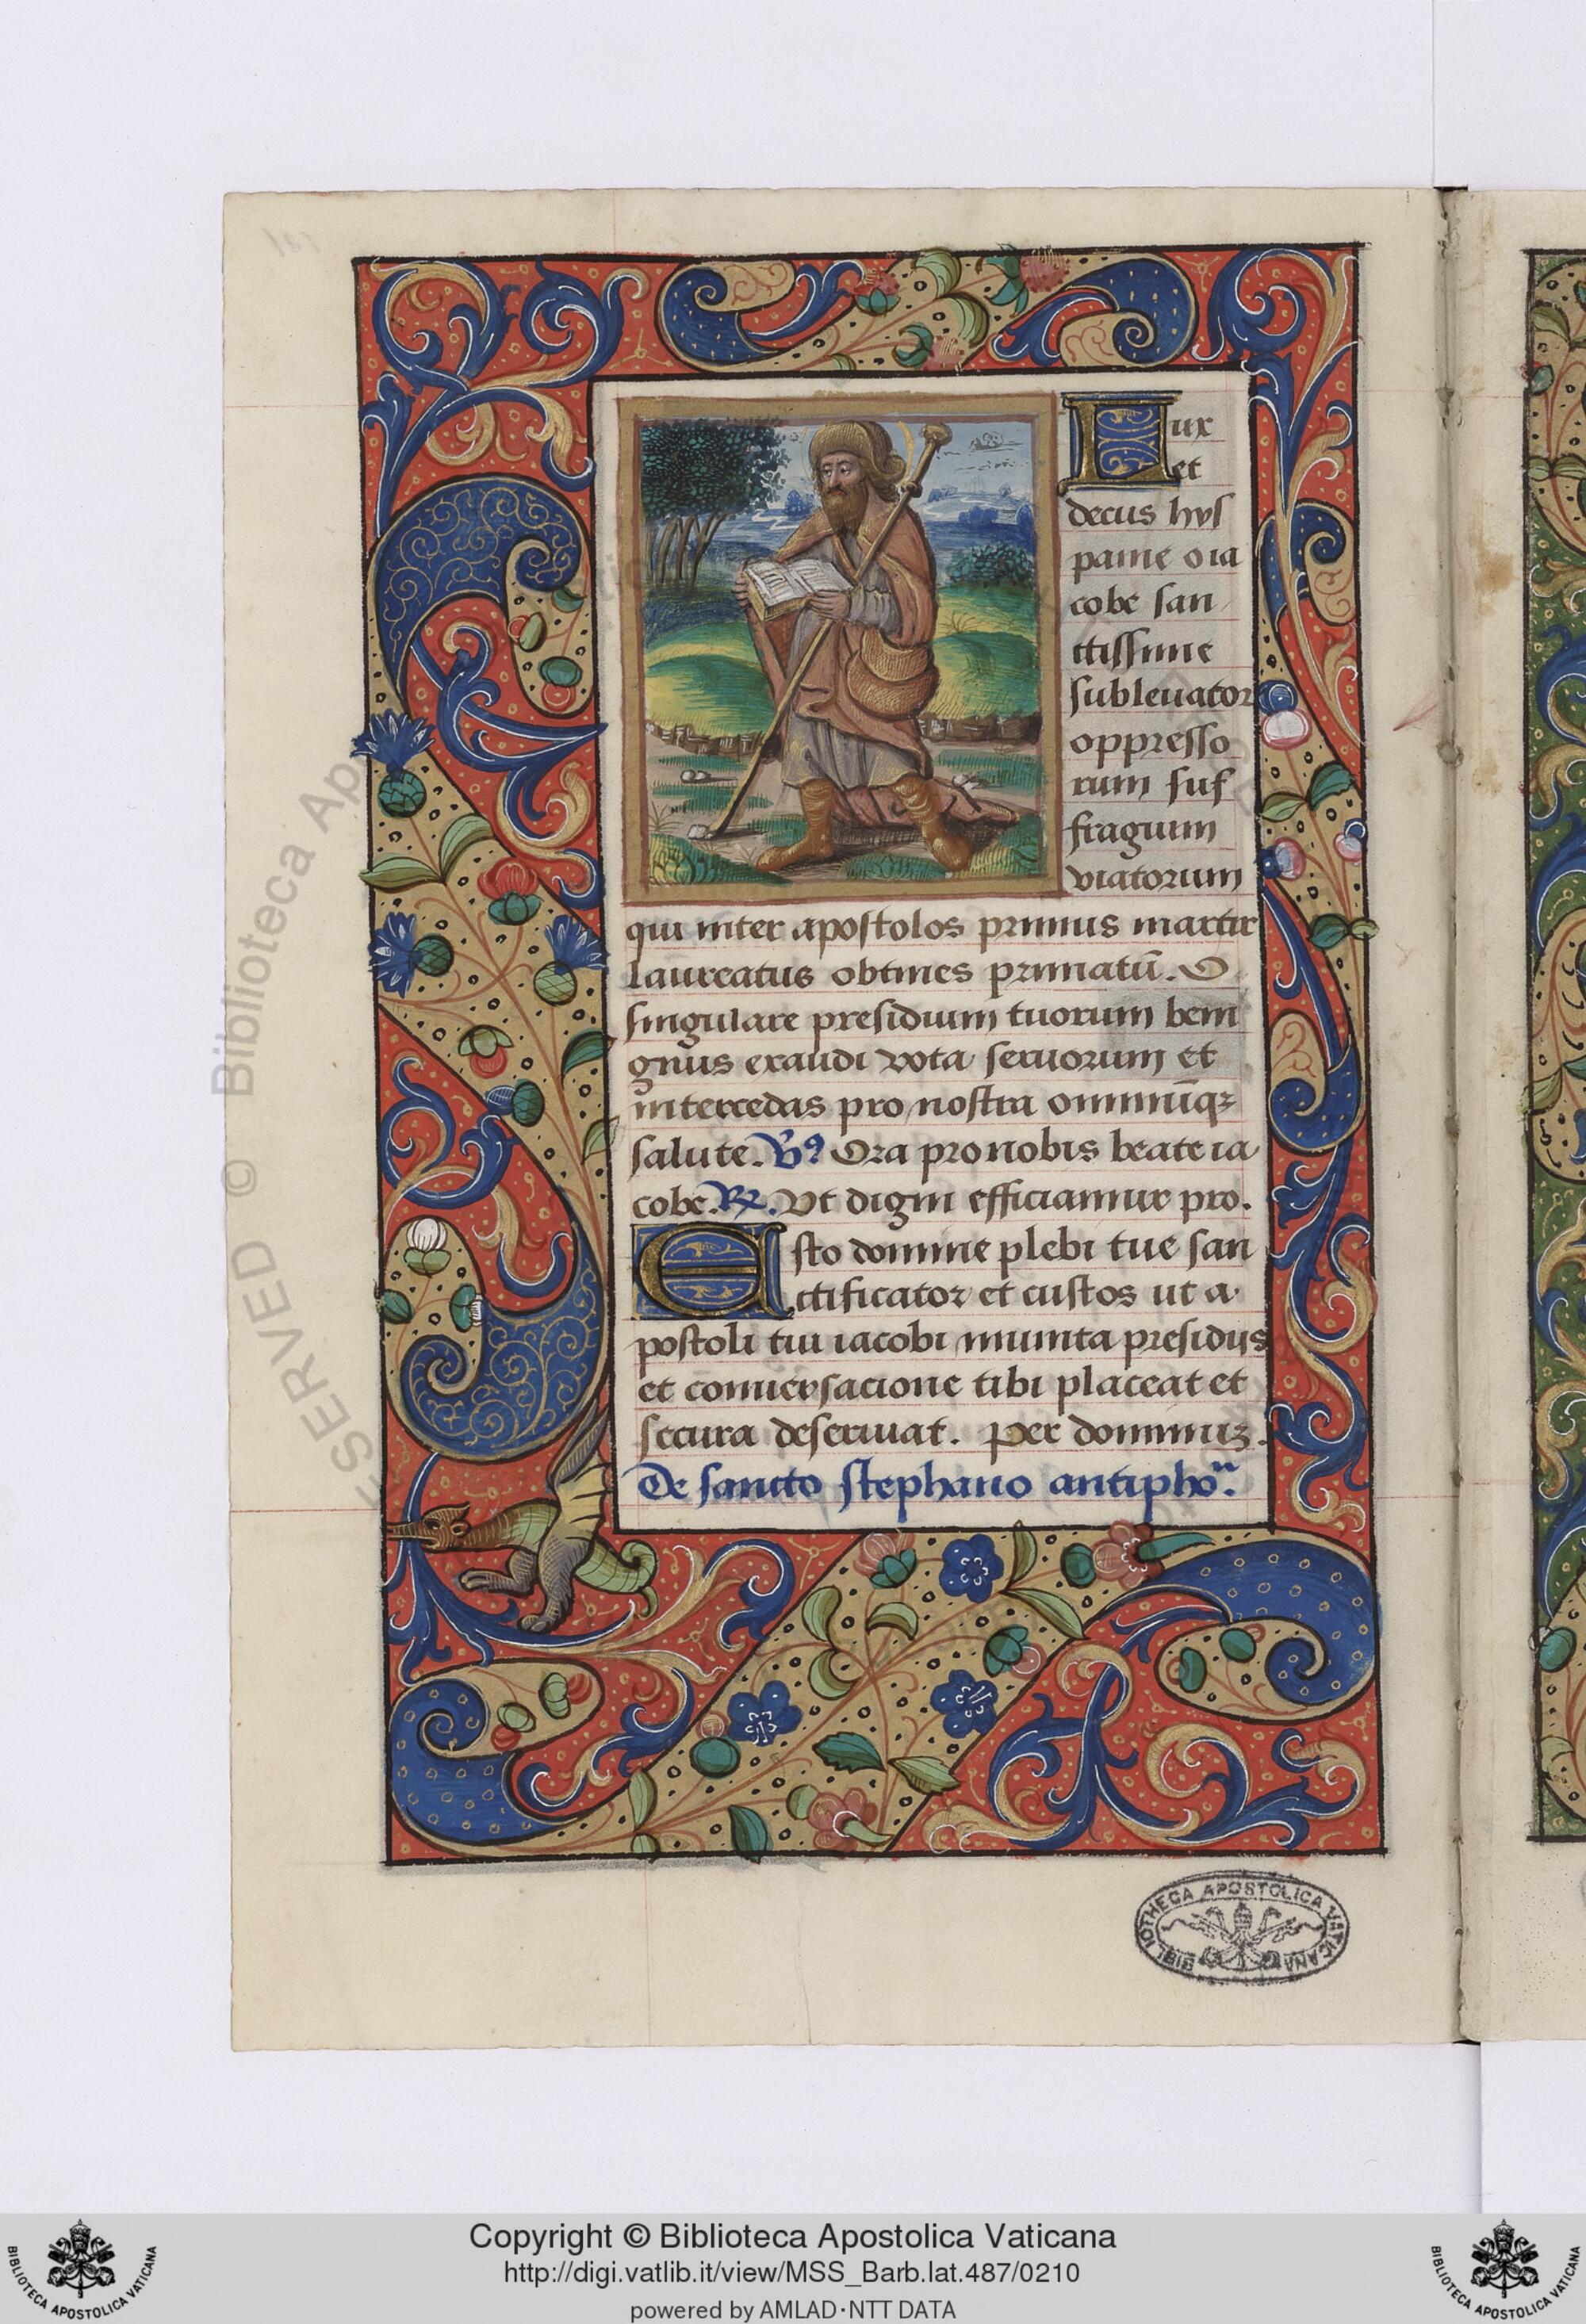 Lux
et
decus hys
panie o ia
cobe san
ctissime
subleuator
oppresso
rum suf
fragium
viatorum
qui inter apostolos primus martir
laureatus obtines primatū. O
singulare presidium tuorum beni
gnus exaudi vota seruorum et
intercedas pro nostra omniūqꝫ
salute. V9 Ora pro nobis beate ia
cobe. ℞. Vt digni efficiamur pro.
Esto domine plebi tue san
ctificator et custos ut a
postoli tui iacobi munita presidijs
et conuersacione tibi placeat et
secura deseruiat. Per dominuꝫ.
De sancto stephano antiphoⁿ.
BIBLIOTHECA APOSTOLICA VATICANA
Copyright © Biblioteca Apostolica Vaticana
http://digi.vatlib.it/view/MSS_Barb.lat.487/0210
powered by AMLAD·NTT DATA
BIBLIOTECA APOSTOLICA VATICANA
BIBLIOTECA APOSTOLICA VATICANA